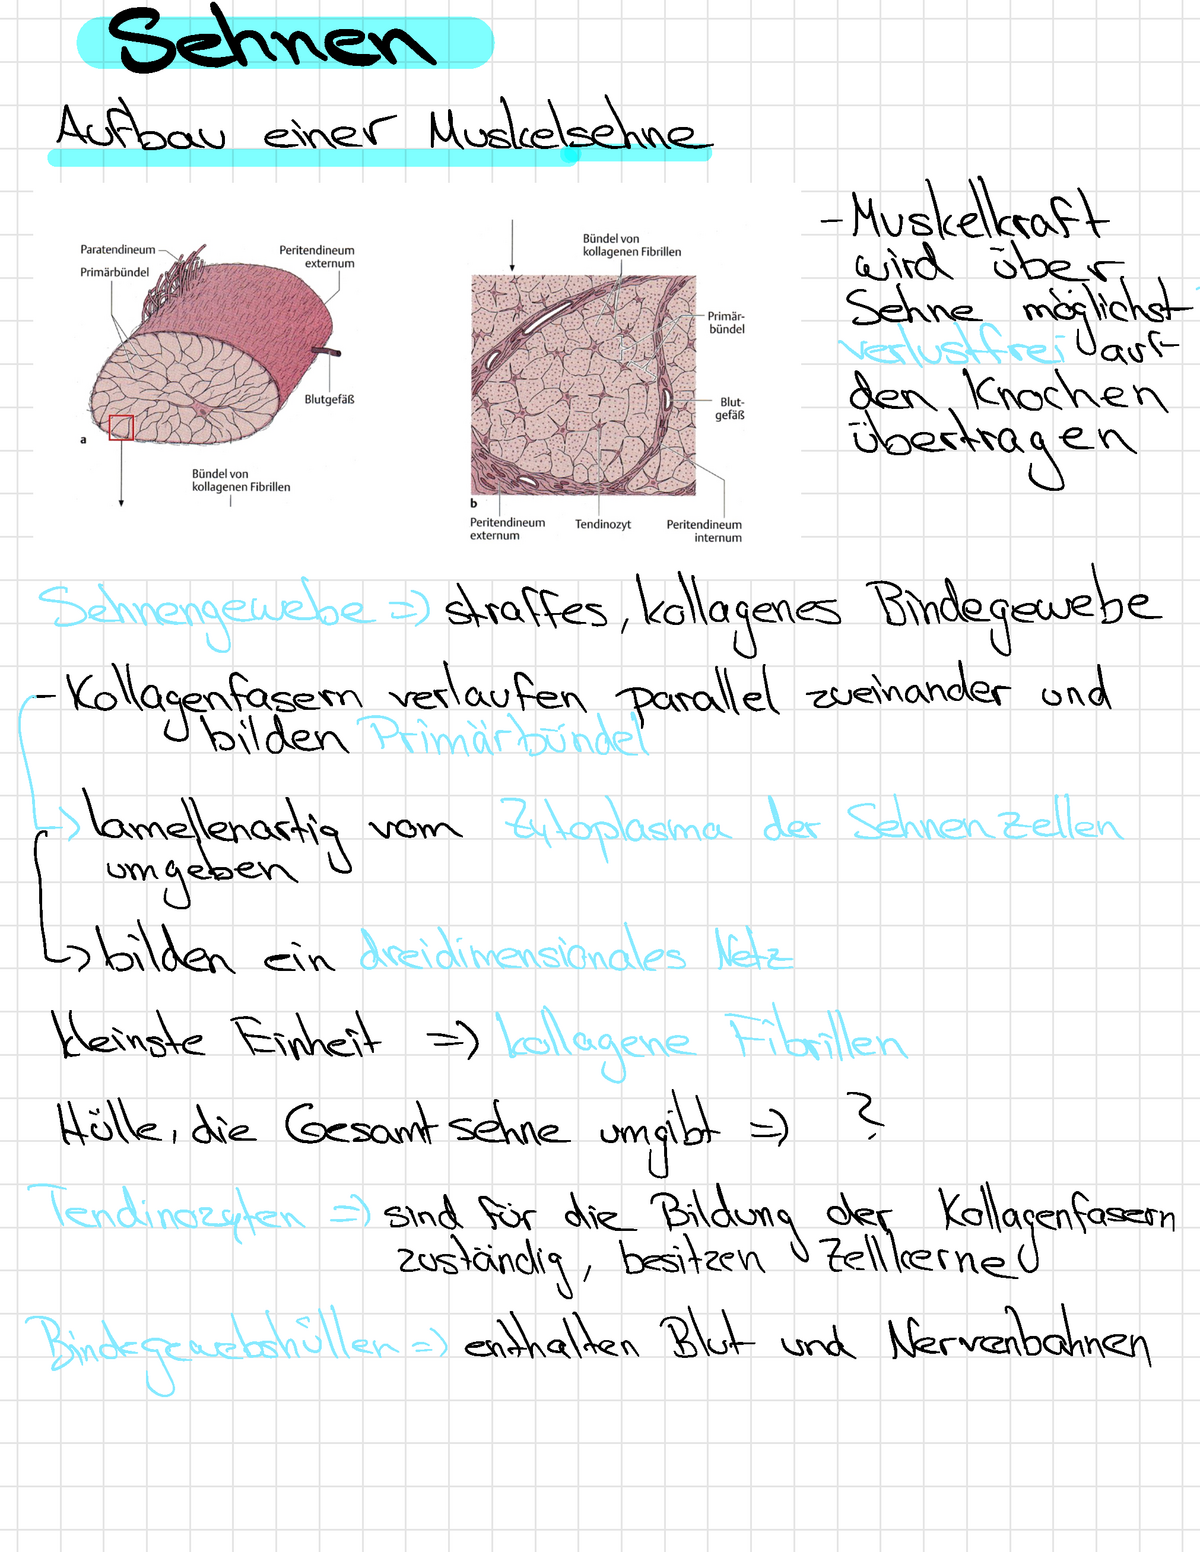 Sehnen
Aufbau einer Muskelsehne
Paratendineum
Primärbündel
Peritendineum
externum
Blutgefäß
a
Bündel von
kollagenen Fibrillen
Bündel von
kollagenen Fibrillen
Primär-
bündel
Blut-
gefäß
b
Peritendineum
externum
Tendinozyt
Peritendineum
internum
- Muskelkraft
wird über
Sehne möglichst
verlustfrei auf
den Knochen
übertragen
Sehnengewebe => straffes, kollagenes Bindegewebe
- Kollagenfasern verlaufen parallel zueinander und
bilden Primärbündel
-> lamellenartig vom Zytoplasma der Sehnenzellen
umgeben
-> bilden ein dreidimensionales Netz
kleinste Einheit => kollagene Fibrillen
Hülle, die Gesamtsehne umgibt => ?
Tendinozyten => sind für die Bildung der Kollagenfasern
zuständig, besitzen Zellkerne
Bindegewebshüllen => enthalten Blut und Nervenbahnen